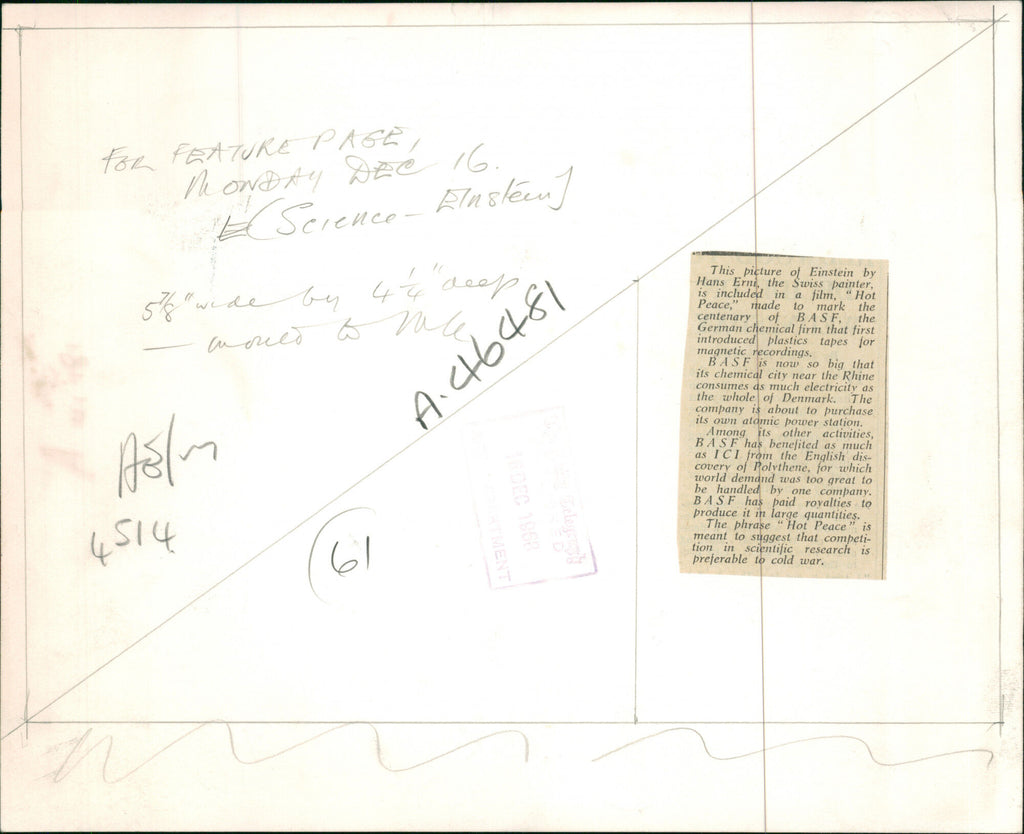 FOR FEATURE PAGE,
MONDAY DEC 16.
(Science - Einstein)
5 7/8" wide by 4 1/4" deep
A.46481
4514
61
16 DEC 1968
This picture of Einstein by
Hans Erni, the Swiss painter,
is included in a film, "Hot
Peace," made to mark the
centenary of BASF, the
German chemical firm that first
introduced plastics tapes for
magnetic recordings.
BASF is now so big that
its chemical city near the Rhine
consumes as much electricity as
the whole of Denmark. The
company is about to purchase
its own atomic power station.
Among its other activities,
BASF has benefited as much
as ICI from the English dis-
covery of Polythene, for which
world demand was too great to
be handled by one company.
BASF has paid royalties to
produce it in large quantities.
The phrase "Hot Peace" is
meant to suggest that competi-
tion in scientific research is
preferable to cold war.